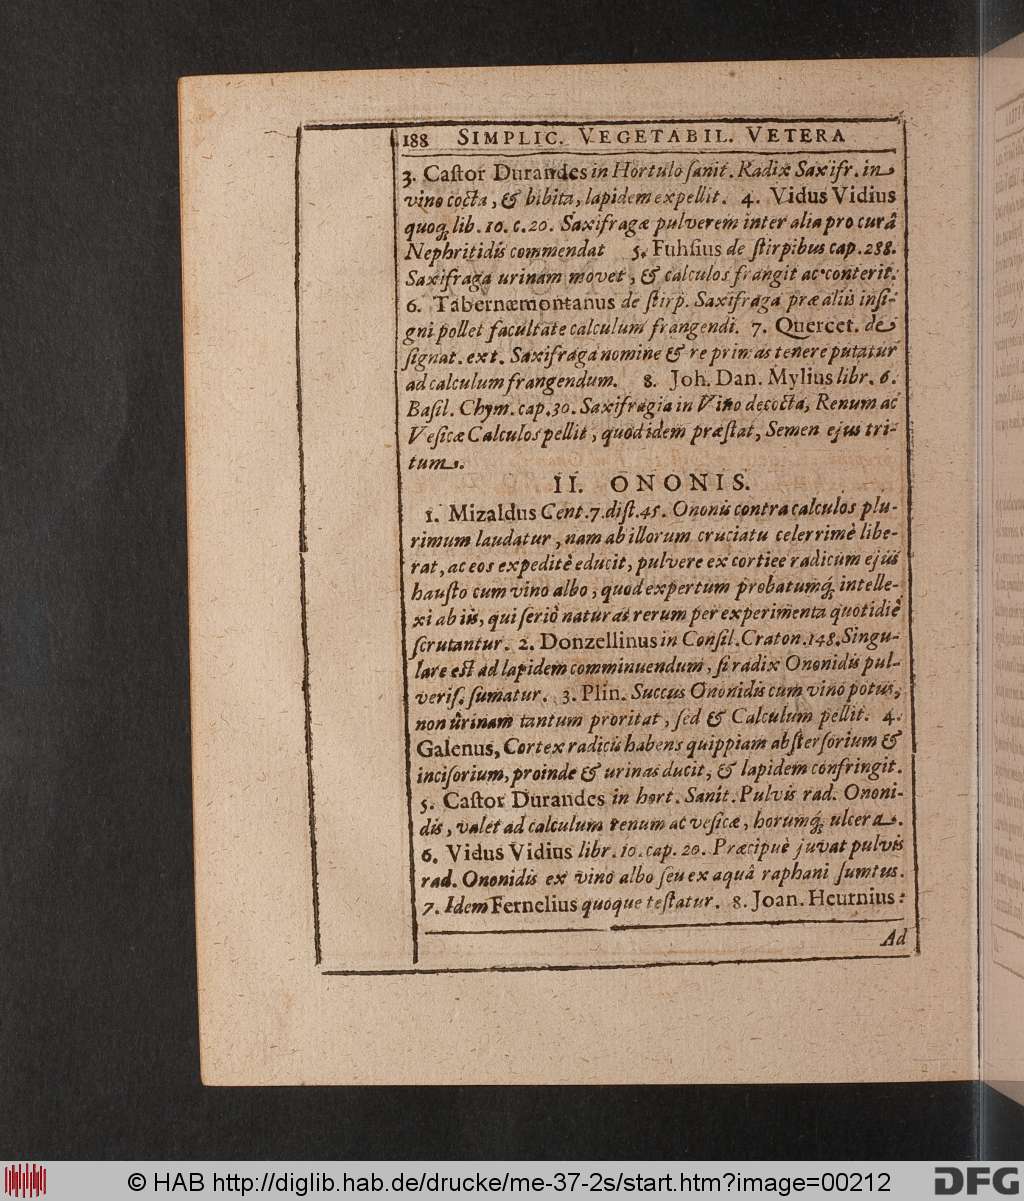 188 SIMPLIC. VEGETABIL. VETERA
3. Caſtor Durandes in Hortulo ſanit. Radix Saxifr. in
vino cocta, & bibita, lapidem expellit. 4. Vidus Vidius
quoq; lib. 10. c. 20. Saxifragæ pulverem inter alia pro curâ
Nephritidis commendat 5. Fuhſius de ſtirpibus cap. 288.
Saxifraga urinam movet, & calculos frangit ac conterit.
6. Tabernæmontanus de ſtirp. Saxifraga præ aliis inſi-
gni pollet facultate calculum frangendi. 7. Quercet. de
ſignat. ext. Saxifraga nomine & re primas tenere putatur
ad calculum frangendum. 8. Joh. Dan. Mylius libr. 6.
Baſil. Chym. cap. 30. Saxifragia in Vino decocta, Renum ac
Veſicæ Calculos pellit, quod idem præſtat, Semen ejus tri-
tum.
II. ONONIS.
1. Mizaldus Cent. 7. diſt. 45. Ononis contra calculos plu-
rimum laudatur, nam ab illorum cruciatu celerrimè libe-
rat, ac eos expeditè educit, pulvere ex cortiee radicum ejus
hauſto cum vino albo, quod expertum probatumq́; intelle-
xi ab iis, qui ſeriò naturas rerum per experimenta quotidiè
ſcrutantur. 2. Donzellinus in Conſil. Craton. 148. Singu-
lare est ad lapidem comminuendum, ſi radix Ononidis pul-
veriſ. ſumatur. 3. Plin. Succus Ononidis cum vino potus,
non ûrinam tantum proritat, ſed & Calculum pellit. 4.
Galenus, Cortex radicis habens quippiam abſterſorium &
inciſorium, proinde & urinas ducit, & lapidem confringit.
5. Caſtor Durandes in hort. Sanit. Pulvis rad. Ononi-
dis, valet ad calculum renum ac veſicæ, horumq́; ulcera.
6. Vidus Vidius libr. 10. cap. 20. Præcipuè juvat pulvis
rad. Ononidis ex vino albo ſeu ex aquâ raphani ſumtus.
7. Idem Fernelius quoque teſtatur. 8. Joan. Heurnius:
Ad
© HAB http://diglib.hab.de/drucke/me-37-2s/start.htm?image=00212
DFG